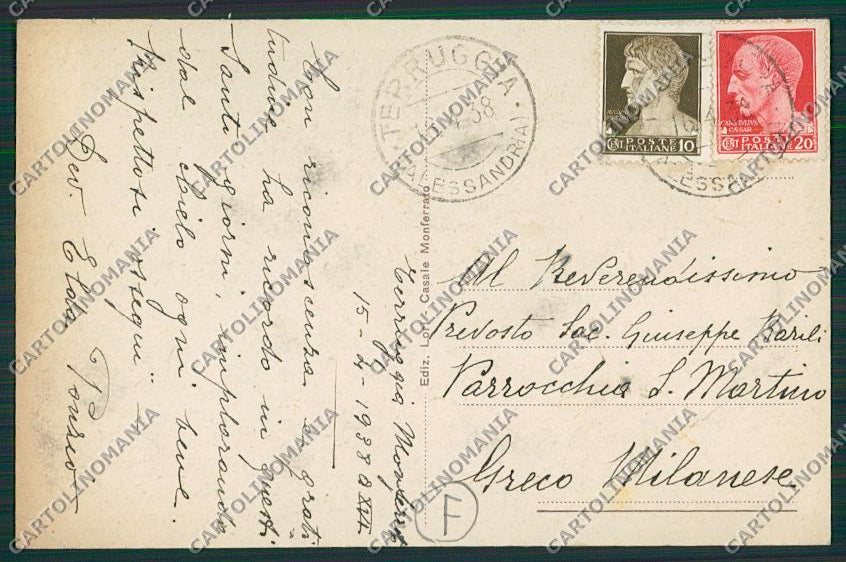 TERRUGGIA
(ALESSANDRIA)
POSTE
ITALIANE
CENT. 10
CAIUS JULIUS
CAESAR
POSTE
ITALIANE
CENT. 20
Terruggia Monferrato
15-4-1938 XVI
Con riconoscenza e grati
tudine ha ricordo in questi
Santi giorni, implorando
dal Cielo ogni bene.
Rispettosi ossequi
Dev. Elda Ponzio
Ediz. Casale Monferrato
Al Reverendissimo
Prevosto Sac. Giuseppe Barili
Parrocchia S. Martino
Greco Milanese
F
CARTOLINOMANIA